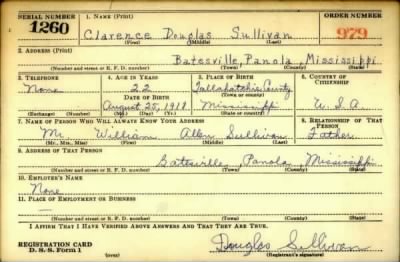 SERIAL NUMBER 1. NAME (Print) ORDER NUMBER
1260 Clarence Douglas Sullivan 979
(First) (Middle) (Last)
2. ADDRESS (Print)
Batesville, Panola, Mississippi
(Number and street or R. F. D. number) (Town) (County) (State)
3. TELEPHONE 4. AGE IN YEARS 5. PLACE OF BIRTH 6. COUNTRY OF CITIZENSHIP
None 22 Tallahatchie County
DATE OF BIRTH (Town or county)
August 25, 1918 Mississippi U.S.A
(Exchange) (Number) (Mo.) (Day) (Yr.) (State or country)
7. NAME OF PERSON WHO WILL ALWAYS KNOW YOUR ADDRESS 8. RELATIONSHIP OF THAT PERSON
Mr. William Allen Sullivan Father
(Mr., Mrs., Miss) (First) (Middle) (Last)
9. ADDRESS OF THAT PERSON
Batesville Panola Mississippi
(Number and street or R. F. D. number) (Town) (County) (State)
10. EMPLOYER'S NAME
None
11. PLACE OF EMPLOYMENT OR BUSINESS
—
(Number and street or R. F. D. number) (Town) (County) (State)
I AFFIRM THAT I HAVE VERIFIED ABOVE ANSWERS AND THAT THEY ARE TRUE.
REGISTRATION CARD
D. S. S. Form 1 (over) Douglas Sullivan
(Registrant's signature)